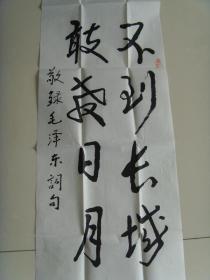 不到长城
敢教日月
敬録毛泽东詞句